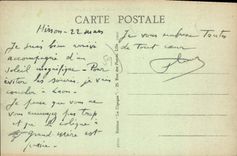 CARTE POSTALE
Hirson - 22 mars
Je suis bien arrivé
accompagné d'un
soleil magnifique - Pour
éviter les soucis, je vais
coucher à Laon -
Je pense que vous ne
vous ennuyez pas trop
et que la
grand mère est
Je vous embrasse Toutes
de tout cœur